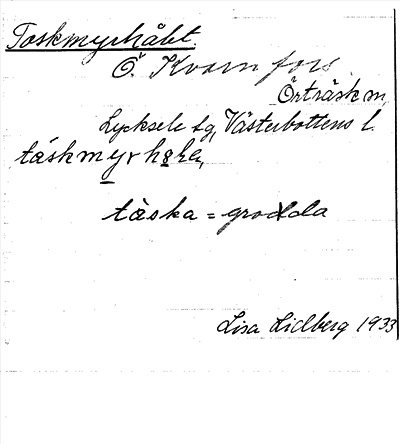 Toskmyrhålet
Ö. Kvarnfors.
Örträsk m,
Lycksele sg, Västerbottens l.
tåskmyrhǫle,
tåska = grodda
Lisa Lidberg 1933